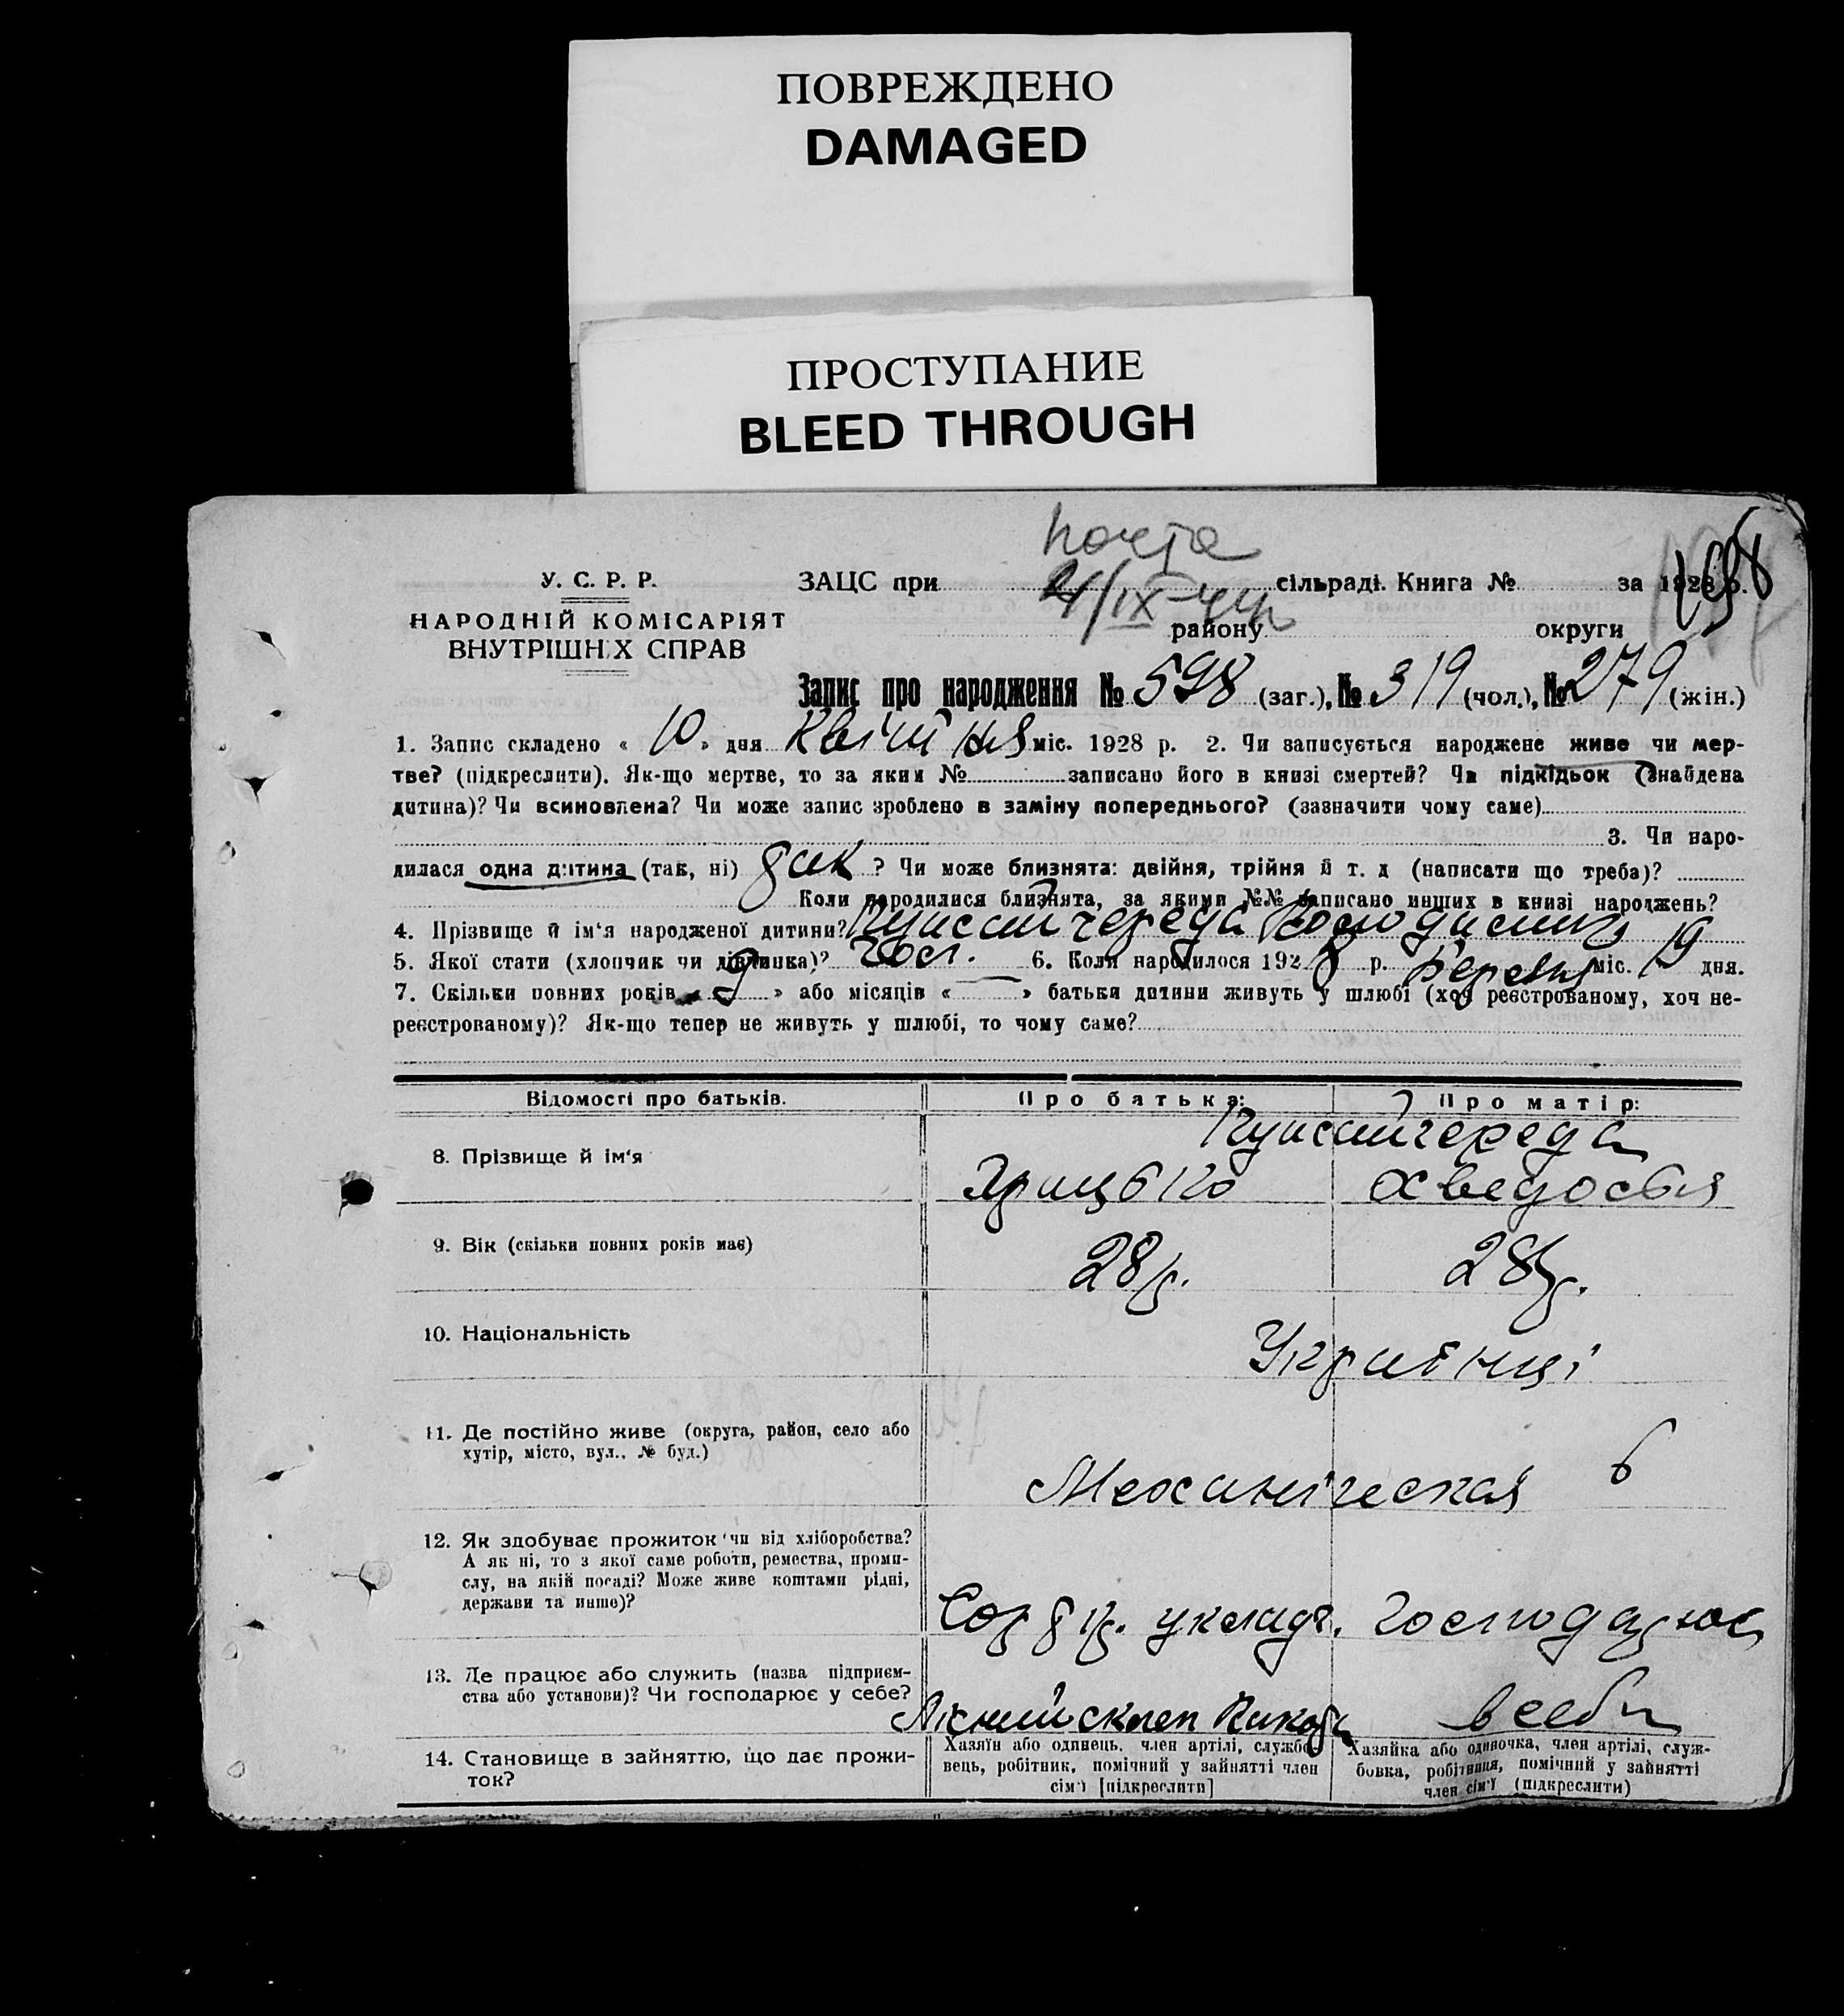 ПОВРЕЖДЕНО
DAMAGED
ПРОСТУПАНИЕ
BLEED THROUGH
почта
У. С. Р. Р.
ЗАЦС при сільраді. Книга № за 1928 р.
НАРОДНІЙ КОМІСАРІЯТ
ВНУТРІШНІХ СПРАВ
району округи
Запис про народження № 598 (заг.), № 319 (чол.), № 279 (жін.)
1. Запис складено « 10 » дня Квітня міс. 1928 р. 2. Чи записується народжене живе чи мер-
тве? (підкреслити). Як-що мертве, то за яким № записано його в книзі смертей? Чи підкідьок (знайдена
дитина)? Чи всиновлена? Чи може запис зроблено в заміну попереднього? (зазначити чому саме)
3. Чи наро-
дилася одна дитина (так, ні) так ? Чи може близнята: двійня, трійня й т. д (написати що треба)?
Коли народилися близнята, за якими №№ записано инших в книзі народжень?
4. Прізвище й ім'я народженої дитини?
5. Якої стати (хлопчик чи дівчинка)? чол. 6. Коли народилося 1928 р. Березня міс. 19 дня.
7. Скільки повних років « 9 » або місяців « — » батьки дитини живуть у шлюбі (хоч реєстрованому, хоч не-
реєстрованому)? Як-що тепер не живуть у шлюбі, то чому саме?
Відомості про батьків. Про батька: Про матір:
8. Прізвище й ім'я
Грицько Хведосья
9. Вік (скільки повних років має) 28 р. 28 р.
10. Національність Українці
11. Де постійно живе (округа, район, село або
хутір, місто, вул., № буд.)
Механическая 6
12. Як здобуває прожиток (чи від хліборобства?
А як ні, то з якої саме роботи, ремества, проми-
слу, на якій посаді? Може живе коштами рідні,
держави та инше)?
укладч. господарює
13. Де працює або служить (назва підприєм-
ства або установи)? Чи господарює у себе?
Лісний склеп в себе
14. Становище в зайняттю, що дає прожи-
ток?
Хазяїн або одинець, член артілі, службо-
вець, робітник, помічний у зайнятті член
сім'ї [підкреслити]
Хазяйка або одиночка, член артілі, служ-
бовка, робітниця, помічний у зайнятті
член сім'ї (підкреслити)